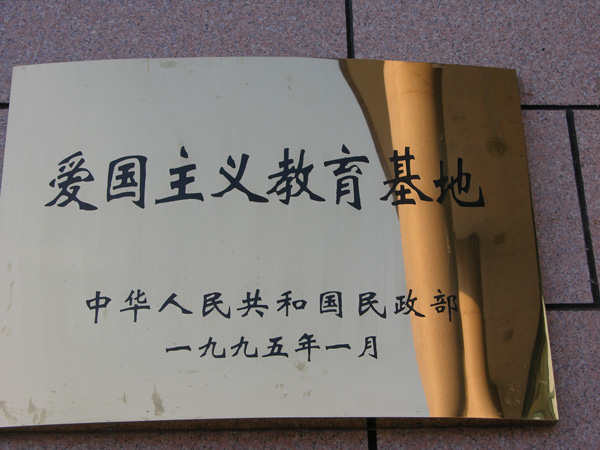 爱国主义教育基地
中华人民共和国民政部
一九九五年一月